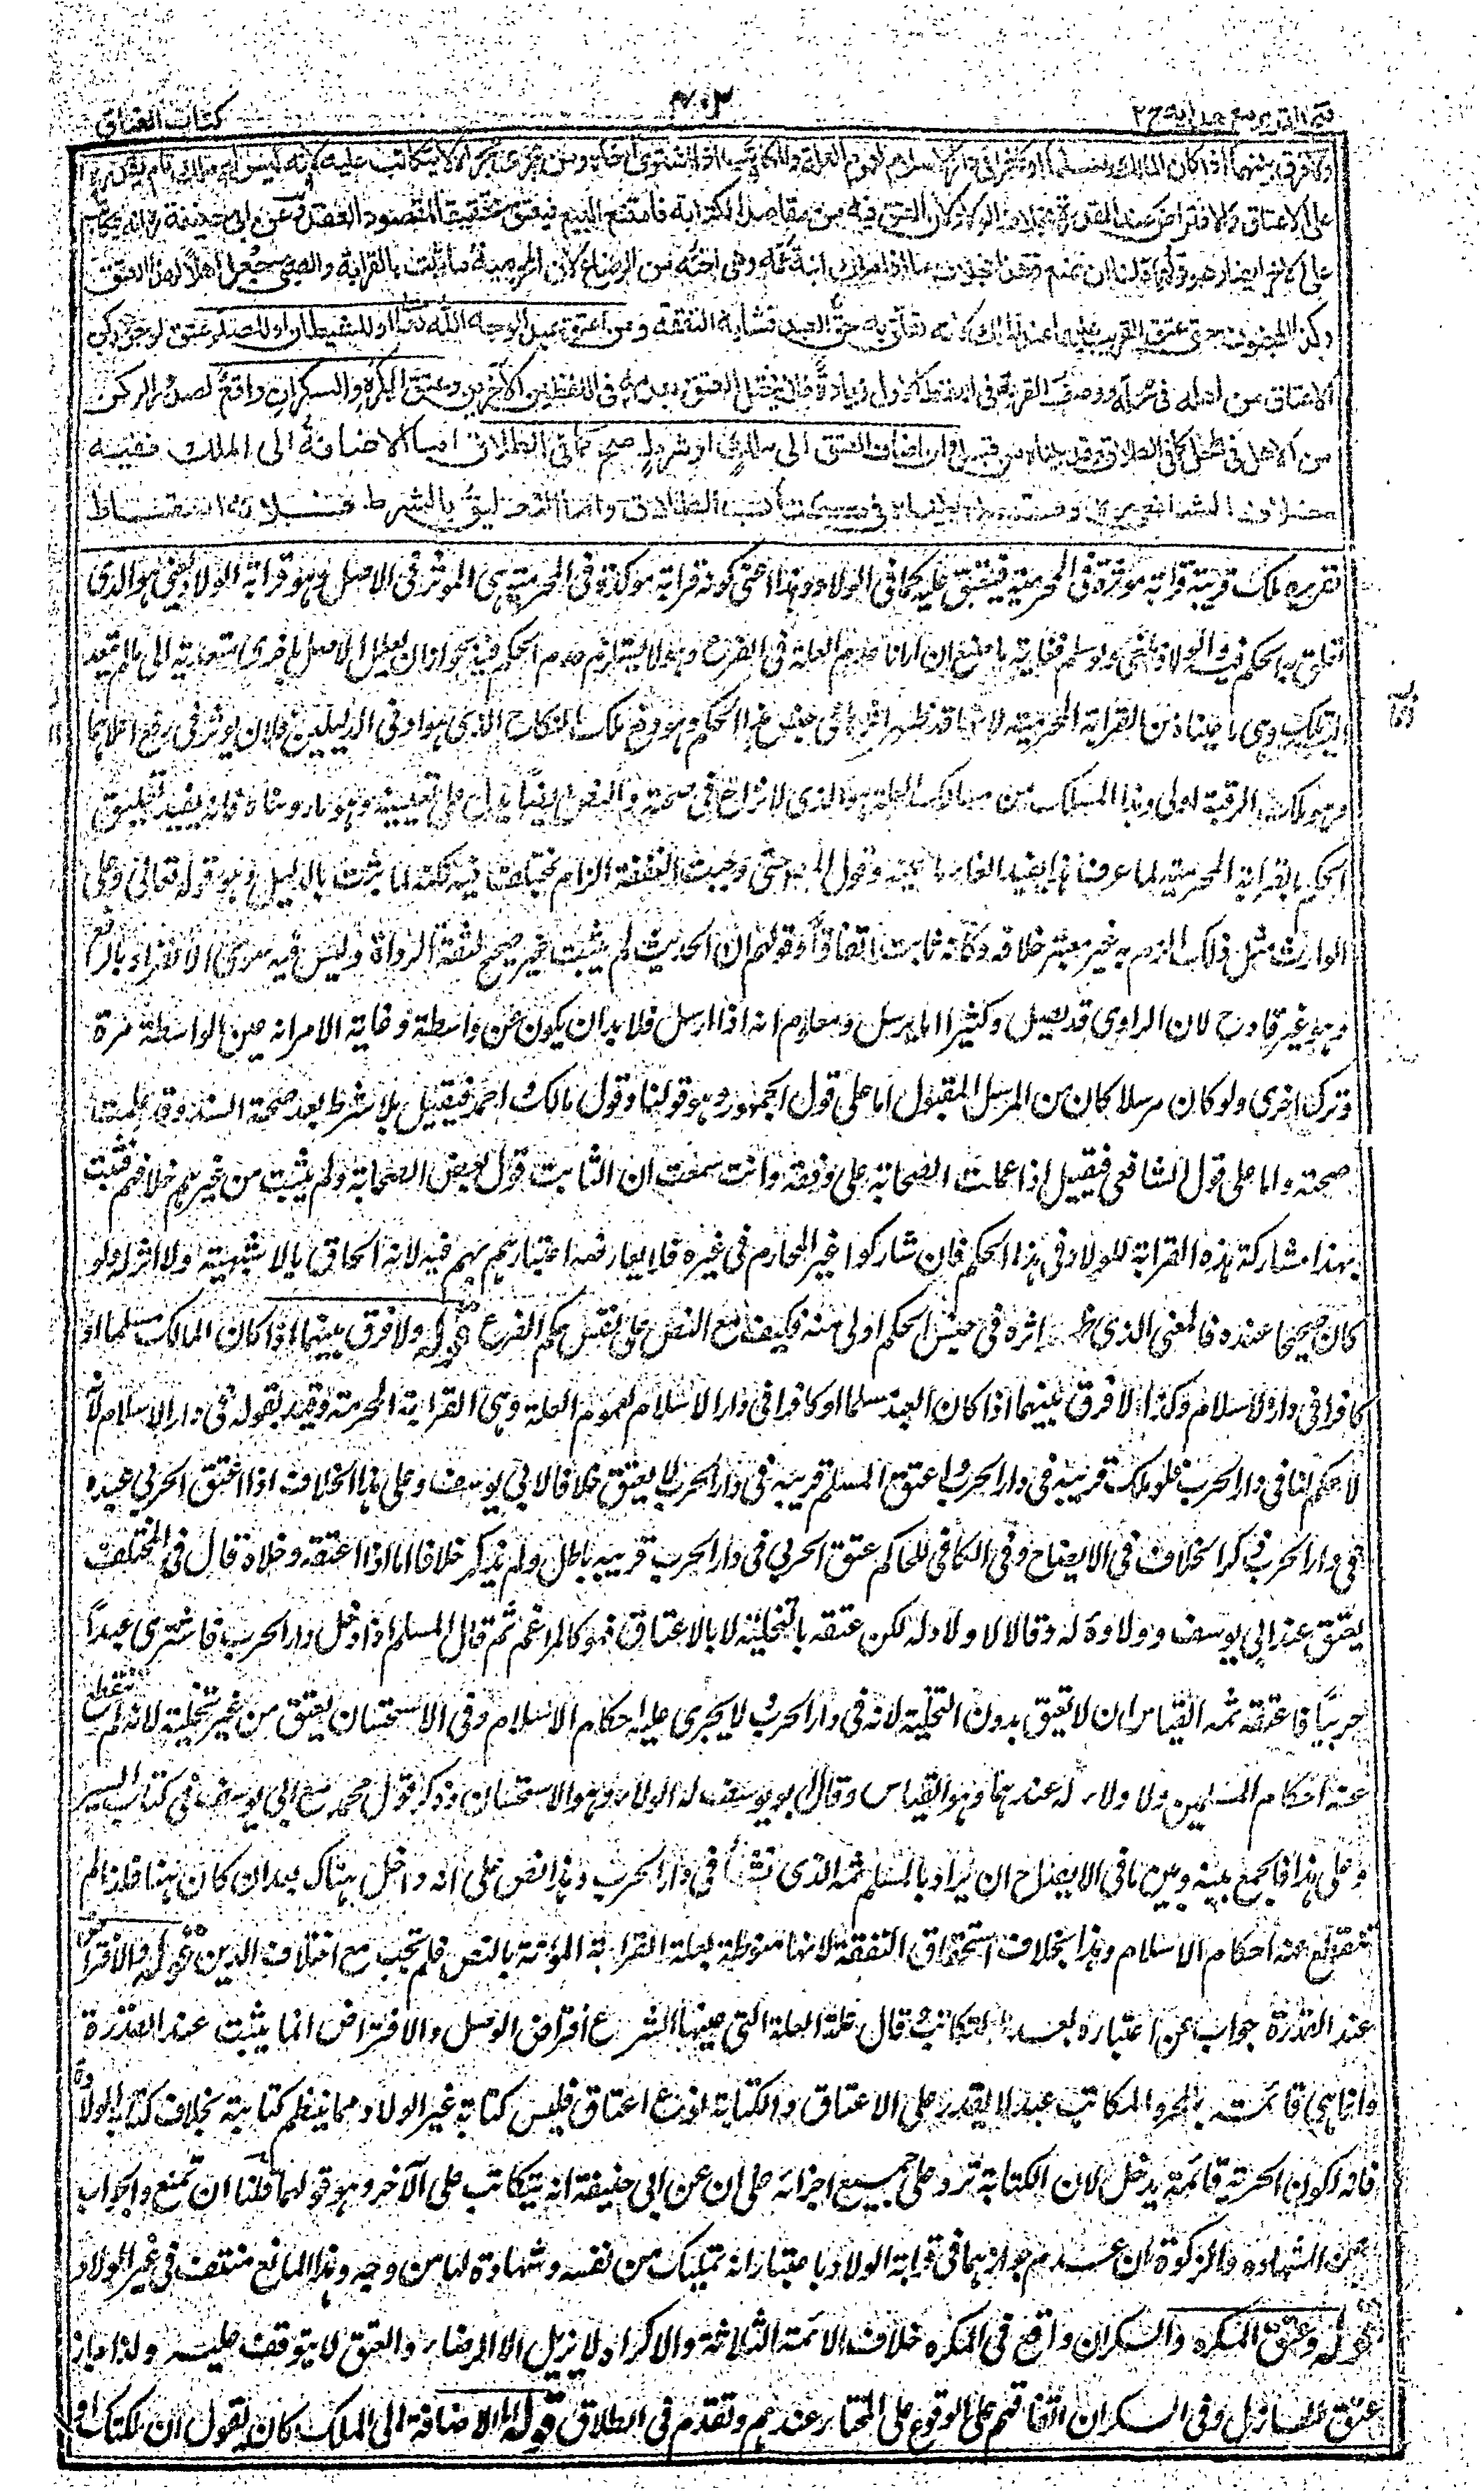 فتح القدير مع هداية ج٢
٢٠٣
كتاب العتاق
ولا فرق بينهما اذا كان المالك مسلما او كافرا فى دار الاسلام لعموم العلة والمكاتب اذا اشترى اخاه ومن يجرى مجراه لا يتكاتب عليه لانه ليس له ملك تام يقدره
على الاعتاق والافتراض عند القدرة بخلاف الولاد لان العتق فيه من مقاصد الكتابة فامتنع البيع فيعتق تحقيقا لمقصود العقد وعن ابى حنيفة انه يتكاتب
على الاخ ايضا وهو قولهما فلنا ان نمنع وهذا بخلاف ما اذا ملك ابنة عمه وهى اخته من الرضاع لان المحرمية ما ثبتت بالقرابة والصبى جعل اهلا لهذا العتق
وكذا المجنون حتى عتق القريب عليهما عند الملك لانه تعلق به حق العبد فشابه النفقة ومن اعتق عبدا لوجه الله تعالى او للشيطان او للصنم عتق لوجود ركن
الاعتاق من اهله فى محله ووصف القربة فى اللفظ الاول زيادة فلا يختل العتق بعدمه فى اللفظين الآخرين وعتق المكره والسكران واقع لصدور الركن
من الاهل فى المحل كما فى الطلاق وقد بيناه من قبل وان اضاف العتق الى ملك او شرط صح كما فى الطلاق اما الاضافة الى الملك ففيه
خلاف الشافعى وقد بيناه فى كتاب الطلاق واما التعليق بالشرط فلانه اسقاط
تقريره ملك قريبه قرابة مؤثرة فى المحرمية فيعتق عليه كما فى الولاد وهذا اعنى كونه قرابة مؤكدة فى المحرمية هى المؤثر فى الاصل وهو قرابة الولاد يعنى هو الذى
تعلق به الحكم فيه والولاد ملغى ولو سلم فغايته
التملك وهى ما عيناه من القرابة المحرمية لانها قد ظهر اثرها فى جنس هذا الحكم وهو رفع ملك النكاح الذى هو ادنى الذليلين فلان يؤثر فى رفع اعلاهما
وهو ملك الرقبة اولى وهذا المسلك من مسالك العلة هو الذى لا نزاع فى صحته والنص ايضا يدل على تعيينه وهو ما رويناه فانه يفيد تعليق
الحكم بالقرابة المحرمية لما عرف وقول المصنف حتى وجبت النفقة الزام مختلف فيه لكنه لما ثبت بالدليل وهو قوله تعالى وعلى
الوارث مثل ذلك الزم به غير معتبر خلافه وكانه ثابت اتفاقا وقولهم ان الحديث لم يثبت غير صحيح لثقة الرواة وليس فيه سوى الانفراد بالرفع
وهو غير قادح لان الراوى قد يصل وكثيرا ما يرسل ومعلوم انه اذا ارسل فلا بد ان يكون عن واسطة وغاية الامر انه عين الواسطة مرة
وترك اخرى ولو كان مرسلا كان من المرسل المقبول اما على قول الجمهور وهو قولنا وقول مالك واحمد فيقبل بلا شرط بعد صحة السند وقد علمت
صحته واما على قول الشافعى فيقبل اذا عملت الصحابة على وفقه وانت سمعت ان الثابت قول بعض الصحابة ولم يثبت من غيرهم خلافهم فثبت
بهذا مشاركة هذه القرابة للولاد فى هذا الحكم فان شاركوا غير المحارم فى غيره فلا يعارضه اعتبارهم بهم فيه لانه الحاق بالاشبهية ولا اثر له ولو
كان صحيحا عنده فالمعنى الذى ظهر اثره فى جنس الحكم اولى منه فكيف مع النص على نفس حكم الفرع قوله ولا فرق بينهما اذا كان المالك مسلما او
كافرا فى دار الاسلام وكذا لا فرق بينهما اذا كان العبد مسلما او كافرا فى دار الاسلام لعموم العلة وهى القرابة المحرمة وقيد بقوله فى دار الاسلام لانه
لا حكم لنا فى دار الحرب فلو ملك قريبه فى دار الحرب او اعتق المسلم قريبه فى دار الحرب لا يعتق خلافا لابى يوسف وعلى هذا الخلاف اذا اعتق الحربى عبده
فى دار الحرب ذكر الخلاف فى الايضاح وفى الكافى للحاكم عتق الحربى فى دار الحرب قريبه باطل ولم يذكر خلافا اما اذا اعتقه وخلاه قال فى المختلف
يعتق عند ابى يوسف وولاؤه له وقالا لا ولاء له لكن عتقه بالتخلية لا بالاعتاق فهو كالمراغم ثم قال المسلم اذا دخل دار الحرب فاشترى عبدا
حربيا فاعتقه ثمه القياس ان لا يعتق بدون التخلية لانه فى دار الحرب لا يجرى عليه احكام الاسلام وفى الاستحسان يعتق من غير تخلية لانه لم تنقطع
عنه احكام المسلمين ولا ولاء له عندهما وهو القياس وقال ابو يوسف له الولاء وهو الاستحسان وذكر قول محمد مع ابى يوسف فى كتاب السير
وعلى هذا فالجمع بينه وبين ما فى الايضاح ان يراد بالمسلم ثمه الذى نشأ فى دار الحرب وهذا نص على انه داخل هناك بعد ان كان هنا فلذا لم
تنقطع عنه احكام الاسلام وهذا بخلاف استحقاق النفقة لانها منوطة بعلة القرابة المؤقتة بالنص فلم تجب مع اختلاف الدين قوله والافتراض
عند القدرة جواب عن اعتباره بعبد المكاتب فقال علة العلة التى عينها الشرع افتراض الوصل والافتراض انما يثبت عند القدرة
وانما هى قائمة بالحر والمكاتب عبد لا يقدر على الاعتاق والكتابة نوع اعتاق فليس كتابة غير الولاد مما ينتظم كتابته بخلاف كتابة الولادة
فانه لكون الحرية قائمة يدخل لان الكتابة ترد على جميع اجزائه على ان عن ابى حنيفة انه يتكاتب على الآخر وهو قولهما فلنا ان نمنع والجواب
عن الشهادة والزكوة ان عدم جوازهما فى قرابة الولاد باعتبار انه تمليك من نفسه وشهادة لها من وجه وهذا المانع منتف فى غير الولاد
قوله وعتق المكره والسكران واقع فى المكره خلاف الائمة الثلاثة والاكراه لا يزيل الا الرضاء والعتق لا يتوقف عليه ولذا جاز
عتق الهازل وفى السكران اتفاقهم على الوقوع على المختار عندهم وتقدم فى الطلاق قوله اما الاضافة الى الملك كان يقول ان ملكتك او